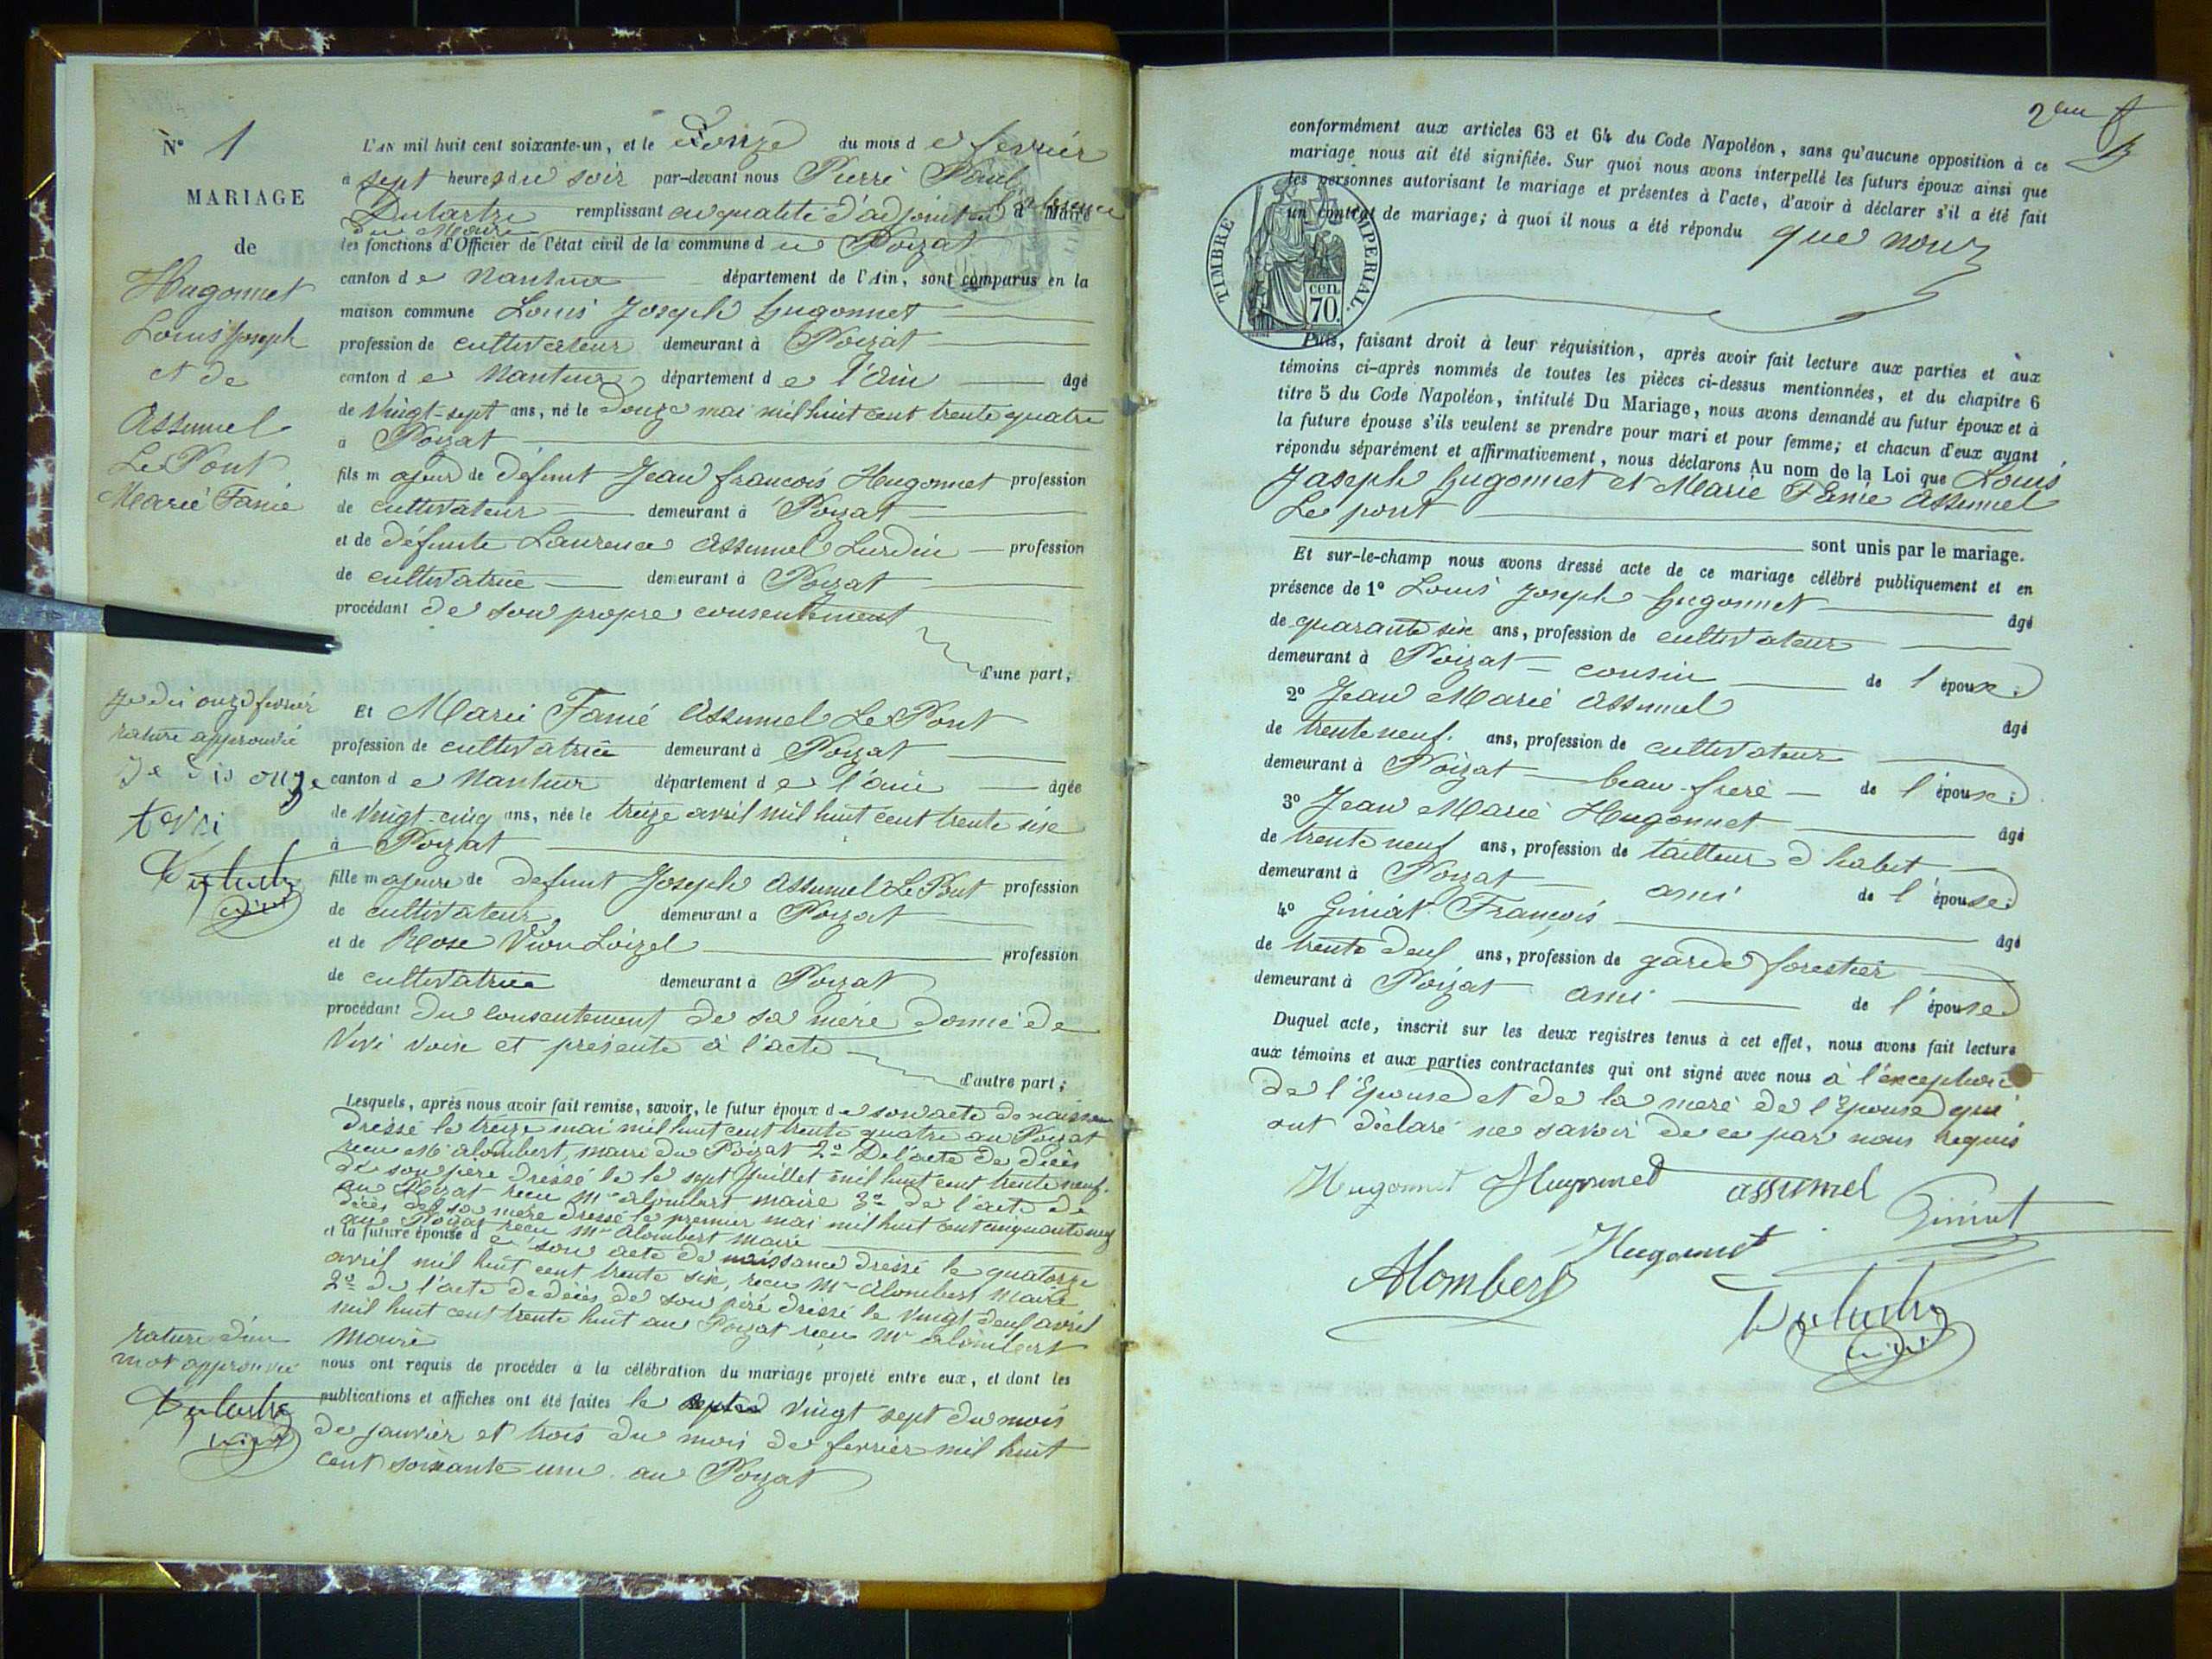 N° 1
MARIAGE
de
Hugonnet
Louis Joseph
et de
Assumel
Le Pont
Marie Fanie
L'AN mil huit cent soixante-un, et le onze du mois de fevrier
à sept heures du soir par-devant nous Pierre Paul
Dutartre remplissant en qualité d'adjoint en l'absence
du Maire
les fonctions d'Officier de l'état civil de la commune du Poizat
canton de Nantua département de l'Ain, sont comparus en la
maison commune Louis Joseph hugonnet
profession de cultivateur demeurant à Poizat
canton de Nantua département de l'ain âgé
de vingt-sept ans, né le Douze mai mil huit cent trente quatre
à Poizat
fils majeur de défunt Jean françois Hugonnet profession
de cultivateur demeurant à Poizat
et de défunte Laurence Assumel Lurdin profession
de cultivatrice demeurant à Poizat
procédant de son propre consentement
d'une part;
Je dis onze fevrier
rature approuvée
Je dis onze
Et Marie Fanie Assumel Le Pont
profession de cultivatrice demeurant à Poizat
canton de Nantua département de l'ain âgée
de vingt-cinq ans, née le treize avril mil huit cent trente sixe
à Poizat
fille majeure de defunt Joseph Assumel Le Pont profession
de cultivateur demeurant à Poizat
et de Rose Vion Loizel profession
de cultivatrice demeurant à Poizat
procédant du consentement de sa mère donné de
vive voix et présente à l'acte
d'autre part;
Lesquels, après nous avoir fait remise, savoir, le futur époux de son acte de naissance
dressé le treize mai mil huit cent trente quatre au Poizat
reçu Mr alombert, maire du Poizat 2° De l'acte de décès
de son père dressé le le sept Juillet mil huit cent trente neuf
au Poizat reçu Mr alombert maire 3° de l'acte de
décès de sa mère dressé le premier mai mil huit cent cinquante neuf
au Poizat reçu Mr Alombert maire
et la future épouse de son acte de naissance dressé le quatorze
avril mil huit cent trente six, reçu Mr alombert maire
2° de l'acte de décès de son père dressé le vingt deuf avril
mil huit cent trente huit au Poizat reçu Mr alombert
maire
nous ont requis de procéder à la célébration du mariage projeté entre eux, et dont les
publications et affiches ont été faites le vingt sept du mois
de janvier et trois du mois de fevrier mil huit
cent soixante une au Poizat
rature d'un
mot approuvée
Dutartre
conformément aux articles 63 et 64 du Code Napoléon, sans qu'aucune opposition à ce
mariage nous ait été signifiée. Sur quoi nous avons interpellé les futurs époux ainsi que
les personnes autorisant le mariage et présentes à l'acte, d'avoir à déclarer s'il a été fait
un contrat de mariage; à quoi il nous a été répondu que non
TIMBRE IMPERIAL.
cen.
70.
Puis, faisant droit à leur réquisition, après avoir fait lecture aux parties et aux
témoins ci-après nommés de toutes les pièces ci-dessus mentionnées, et du chapitre 6
titre 5 du Code Napoléon, intitulé Du Mariage, nous avons demandé au futur époux et à
la future épouse s'ils veulent se prendre pour mari et pour femme; et chacun d'eux ayant
répondu séparément et affirmativement, nous déclarons Au nom de la Loi que Louis
Joseph hugonnet et Marie Fanie Assumel
Le pont
sont unis par le mariage.
Et sur-le-champ nous avons dressé acte de ce mariage célébré publiquement et en
présence de 1° Louis Joseph hugonnet âgé
de quarante sixe ans, profession de cultivateur
demeurant à Poizat cousin de l'époux;
2° Jean Marie Assumel âgé
de trente neuf ans, profession de cultivateur
demeurant à Poizat beau-frère de l'épouse;
3° Jean Marie Hugonnet âgé
de trente neuf ans, profession de tailleur d'habit
demeurant à Poizat ami de l'épouse;
4° Giniat François âgé
de trente deuf ans, profession de garde forestier
demeurant à Poizat ami de l'épouse
Duquel acte, inscrit sur les deux registres tenus à cet effet, nous avons fait lecture
aux témoins et aux parties contractantes qui ont signé avec nous à l'exception
de l'épouse et de la mère de l'épouse qui
ont déclaré ne savoir de ce par nous requis
Hugonnet Hugonnet assumel Giniat
Hugonnet
Alombert
Dutartre